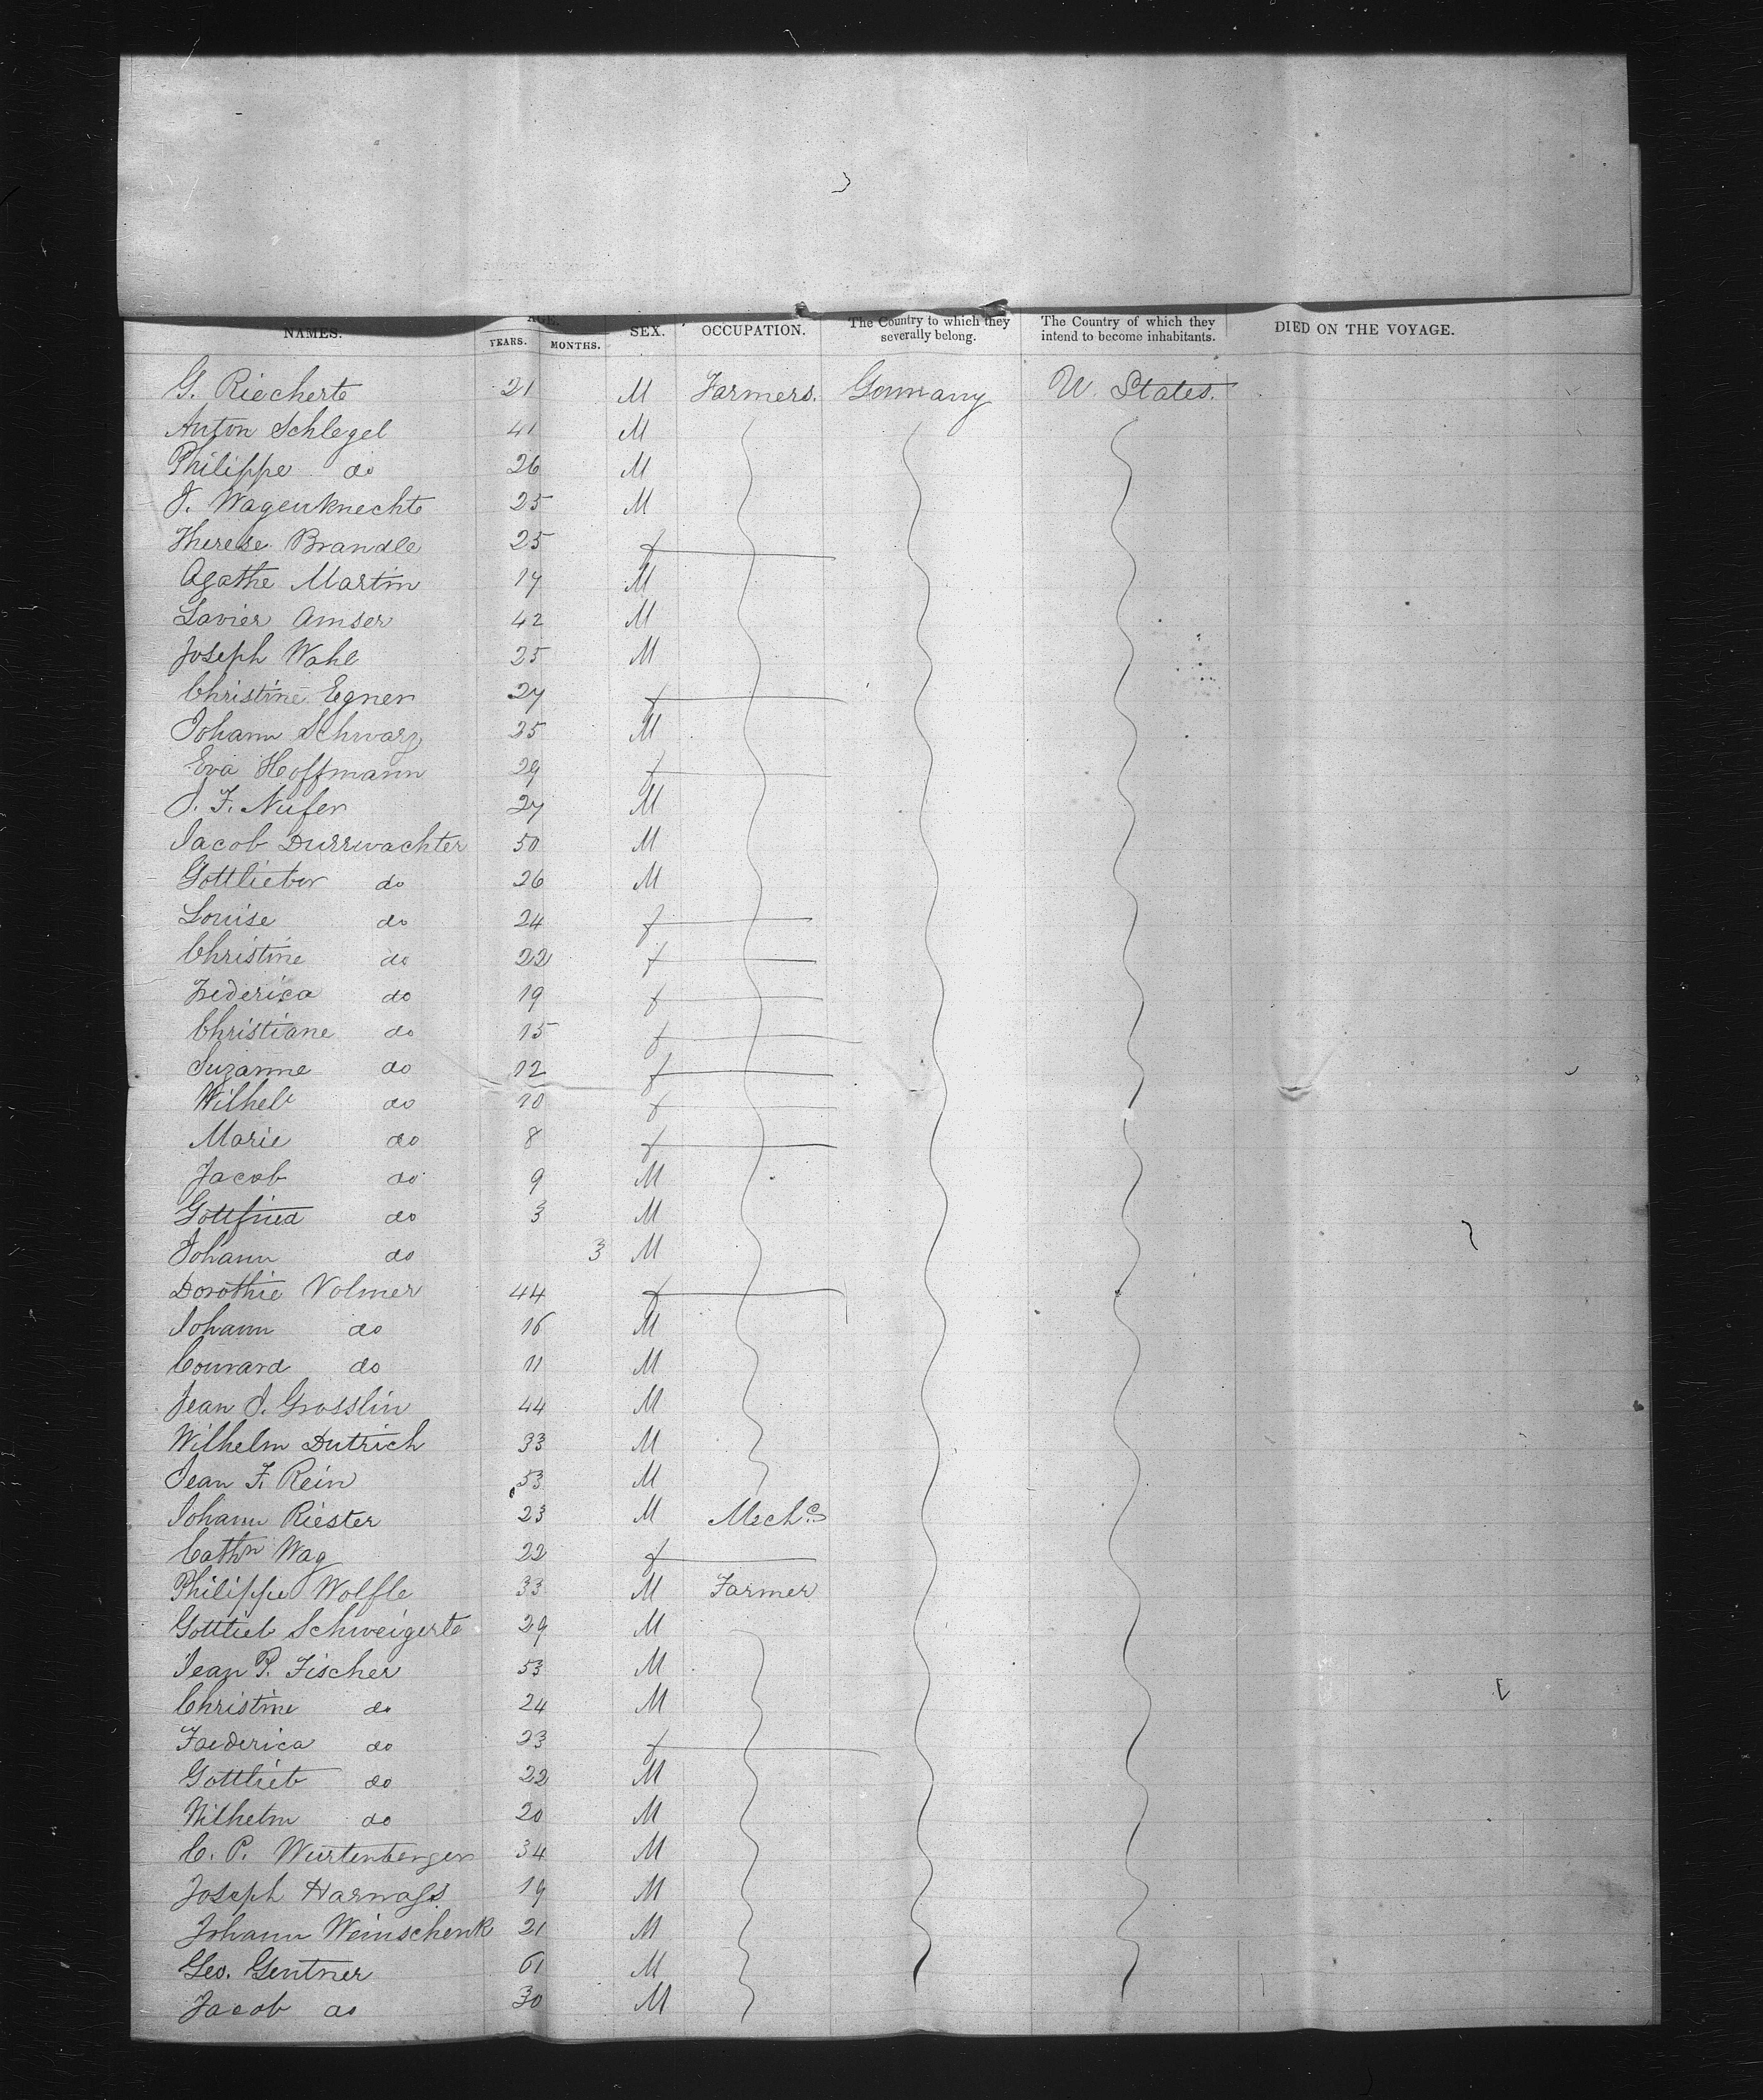 NAMES. AGE. YEARS. MONTHS. SEX. OCCUPATION. The Country to which they severally belong. The Country of which they intend to become inhabitants. DIED ON THE VOYAGE.
G. Riecherte 21 M Farmers. Germany U. States.
Anton Schlegel 41 M
Philippe do 26 M
J. Wagenknechte 25 M
Therese Brandle 25 f
Agathe Martin 17 M
Lavier Amser 42 M
Joseph Wahl 25 M
Christine Egner 27 f
Johann Schwarz 35 M
Eva Hoffmann 29 f
J. F. Nufer 27 M
Jacob Durrwachter 50 M
Gottlieber do 26 M
Louise do 24 f
Christine do 22 f
Frederica do 19 f
Christiane do 15 f
Suzanne do 12 f
Wilhel do 10 f
Marie do 8 f
Jacob do 9 M
Gottfried do 3 M
Johann do 3 M
Dorothie Volmer 44 f
Johann do 16 M
Conrard do 11 M
Jean J. Grosslin 44 M
Wilhelm Dutrich 33 M
Jean F. Rein 53 M
Johann Riester 23 M Mechcs
Cathn Wag 22 f
Philippe Wolfle 33 M Farmer
Gottlieb Schweigerte 29 M
Jean P. Fischer 53 M
Christine do 24 M
Frederica do 23 f
Gottlieb do 22 M
Wilhelm do 20 M
C. P. Wurtenberger 34 M
Joseph 19 M
Johann Weinschenk 21 M
Geo. Gentner 61 M
Jacob do 30 M